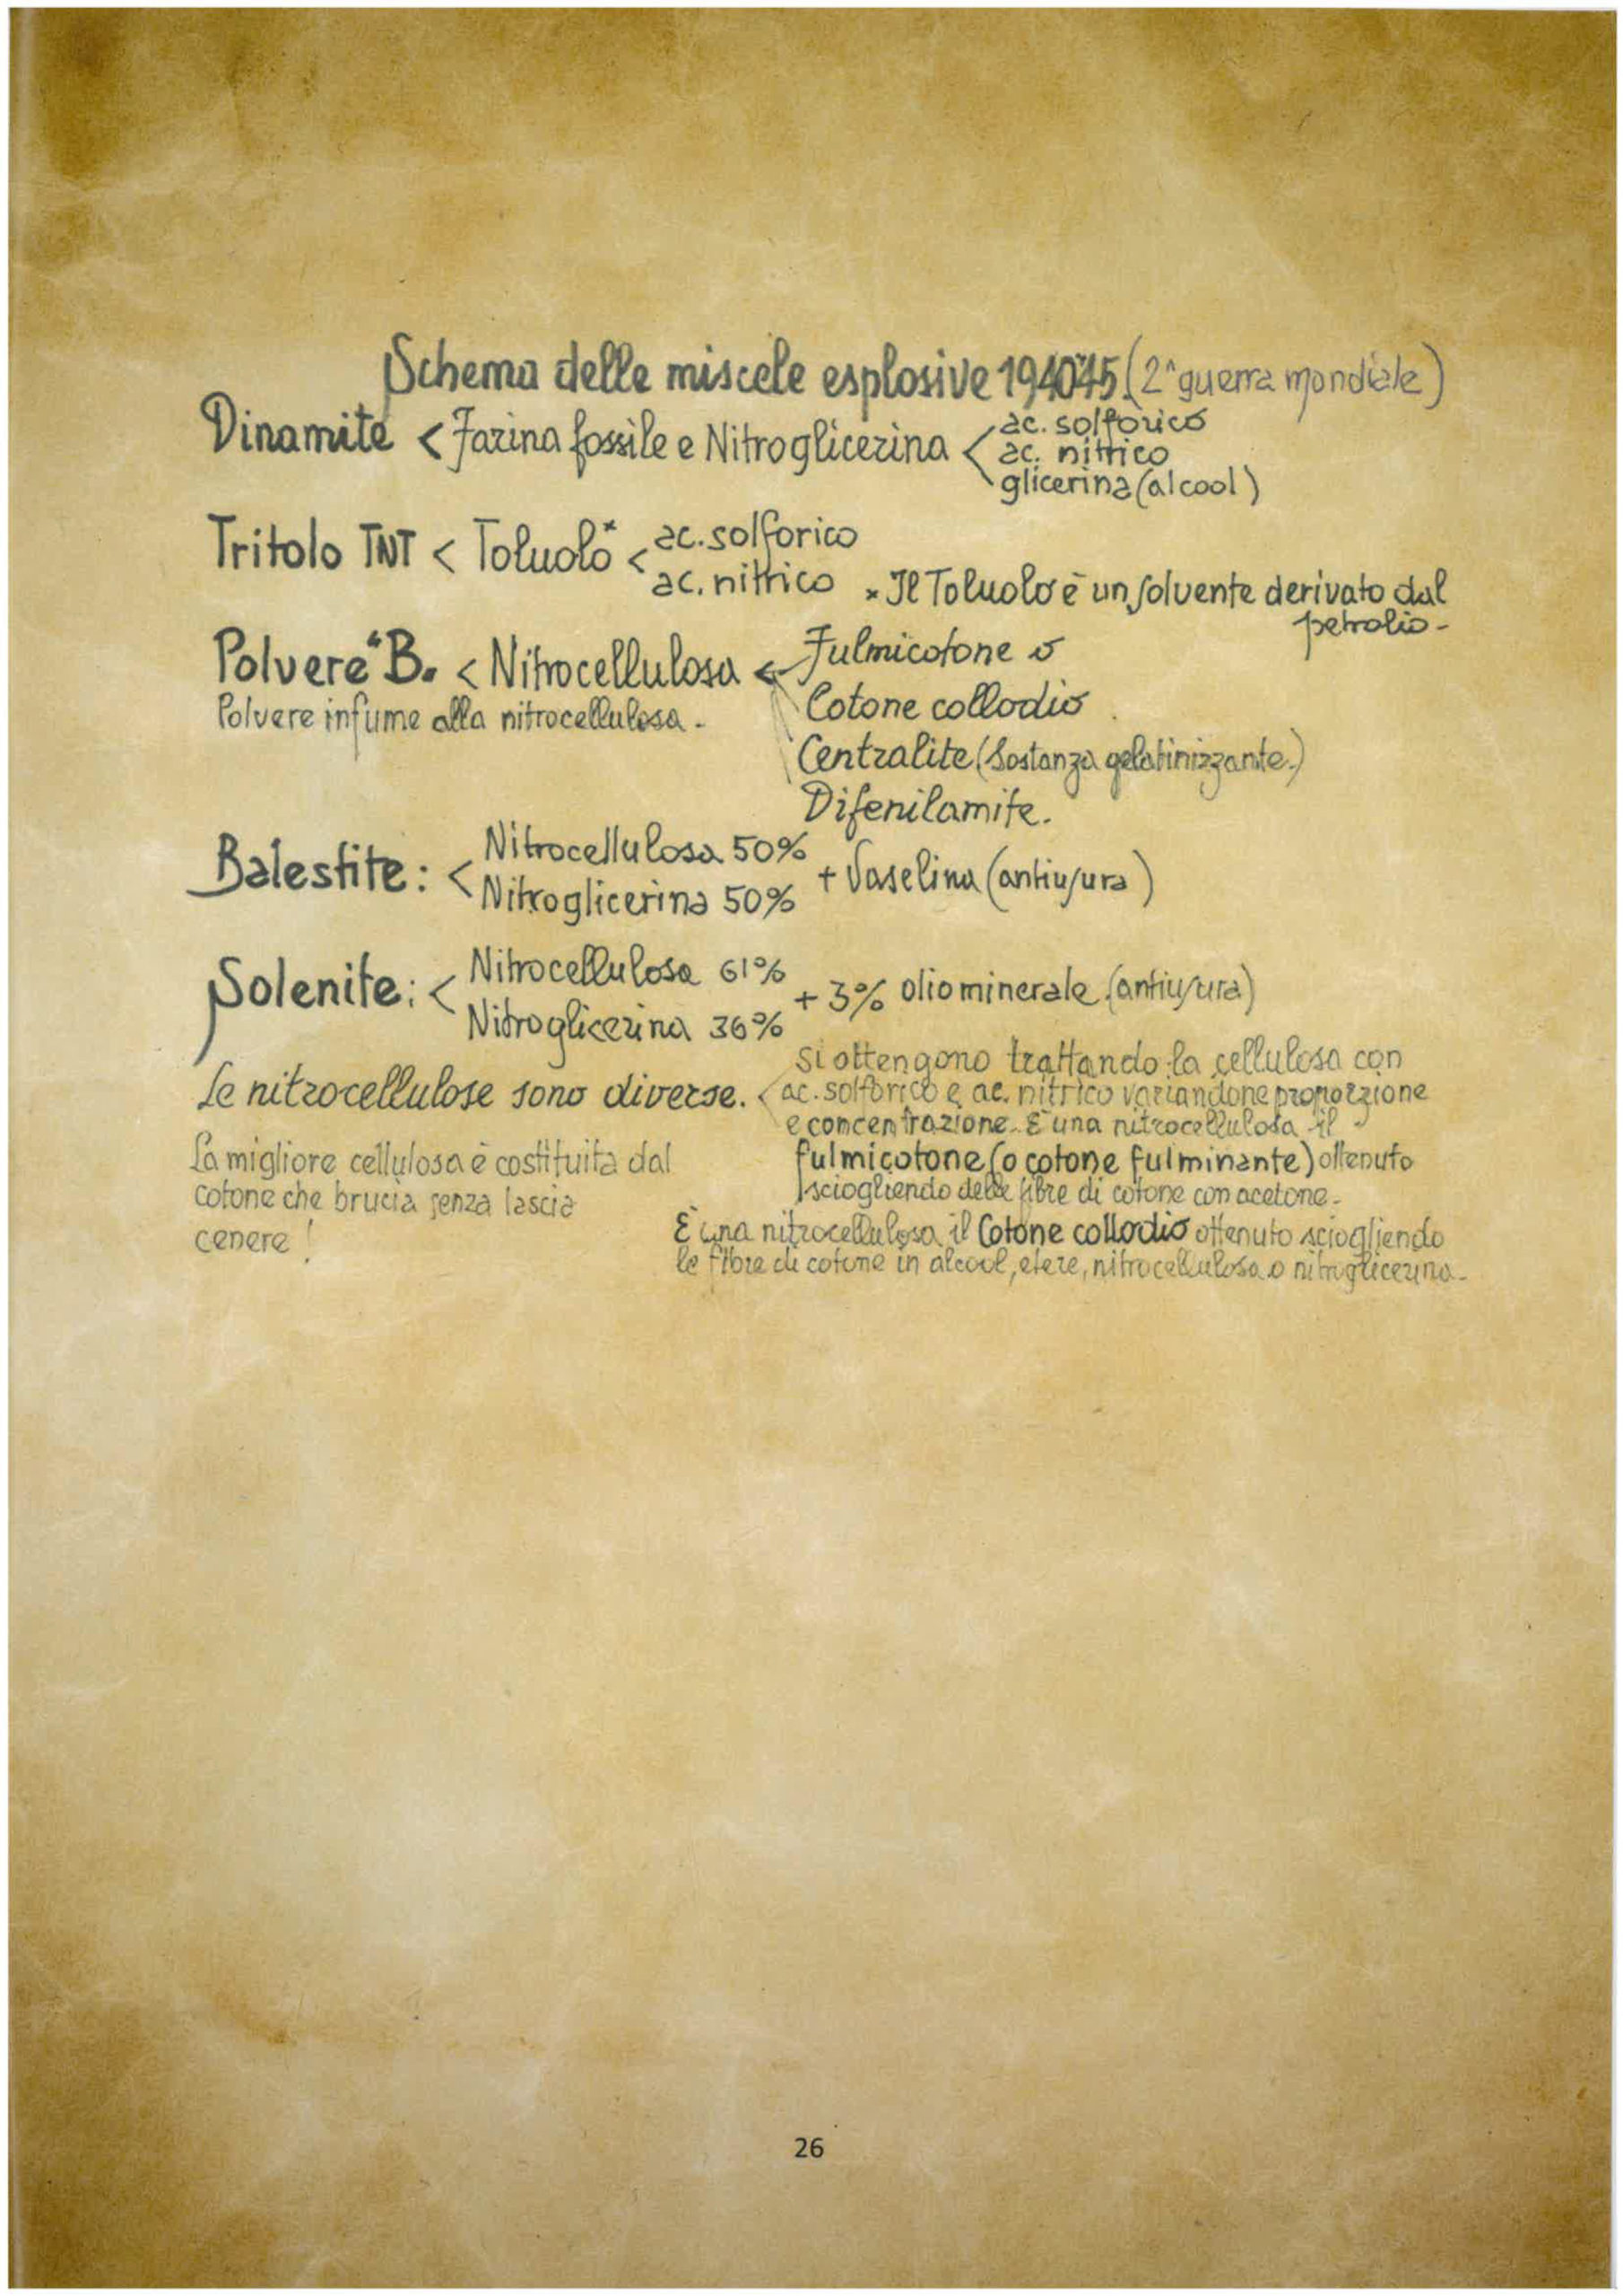 Schema delle miscele esplosive 1940-45 (2^ guerra mondiale)
Dinamite < Farina fossile e Nitroglicerina < ac. solforico
ac. nitrico
glicerina (alcool)
Tritolo TNT < Toluolo* < ac. solforico
ac. nitrico
* Il Toluolo è un solvente derivato dal
petrolio -
Polvere "B. < Nitrocellulosa < Fulmicotone o
Polvere infume alla nitrocellulosa -
Cotone collodio
Centralite (Sostanza gelatinizzante.)
Difenilamite.
Balestite: < Nitrocellulosa 50%
Nitroglicerina 50%
+ Vaselina (antiusura)
Solenite: < Nitrocellulosa 61%
Nitroglicerina 36%
+ 3% olio minerale (antiusura)
Le nitrocellulose sono diverse. < Si ottengono trattando la cellulosa con
ac. solforico e ac. nitrico variandone proporzione
e concentrazione. È una nitrocellulosa il
fulmicotone (o cotone fulminante) ottenuto
sciogliendo delle fibre di cotone con acetone -
La migliore cellulosa è costituita dal
cotone che brucia senza lascia
cenere !
È una nitrocellulosa il Cotone collodio ottenuto sciogliendo
le fibre di cotone in alcool, etere, nitrocellulosa o nitroglicerina -
26